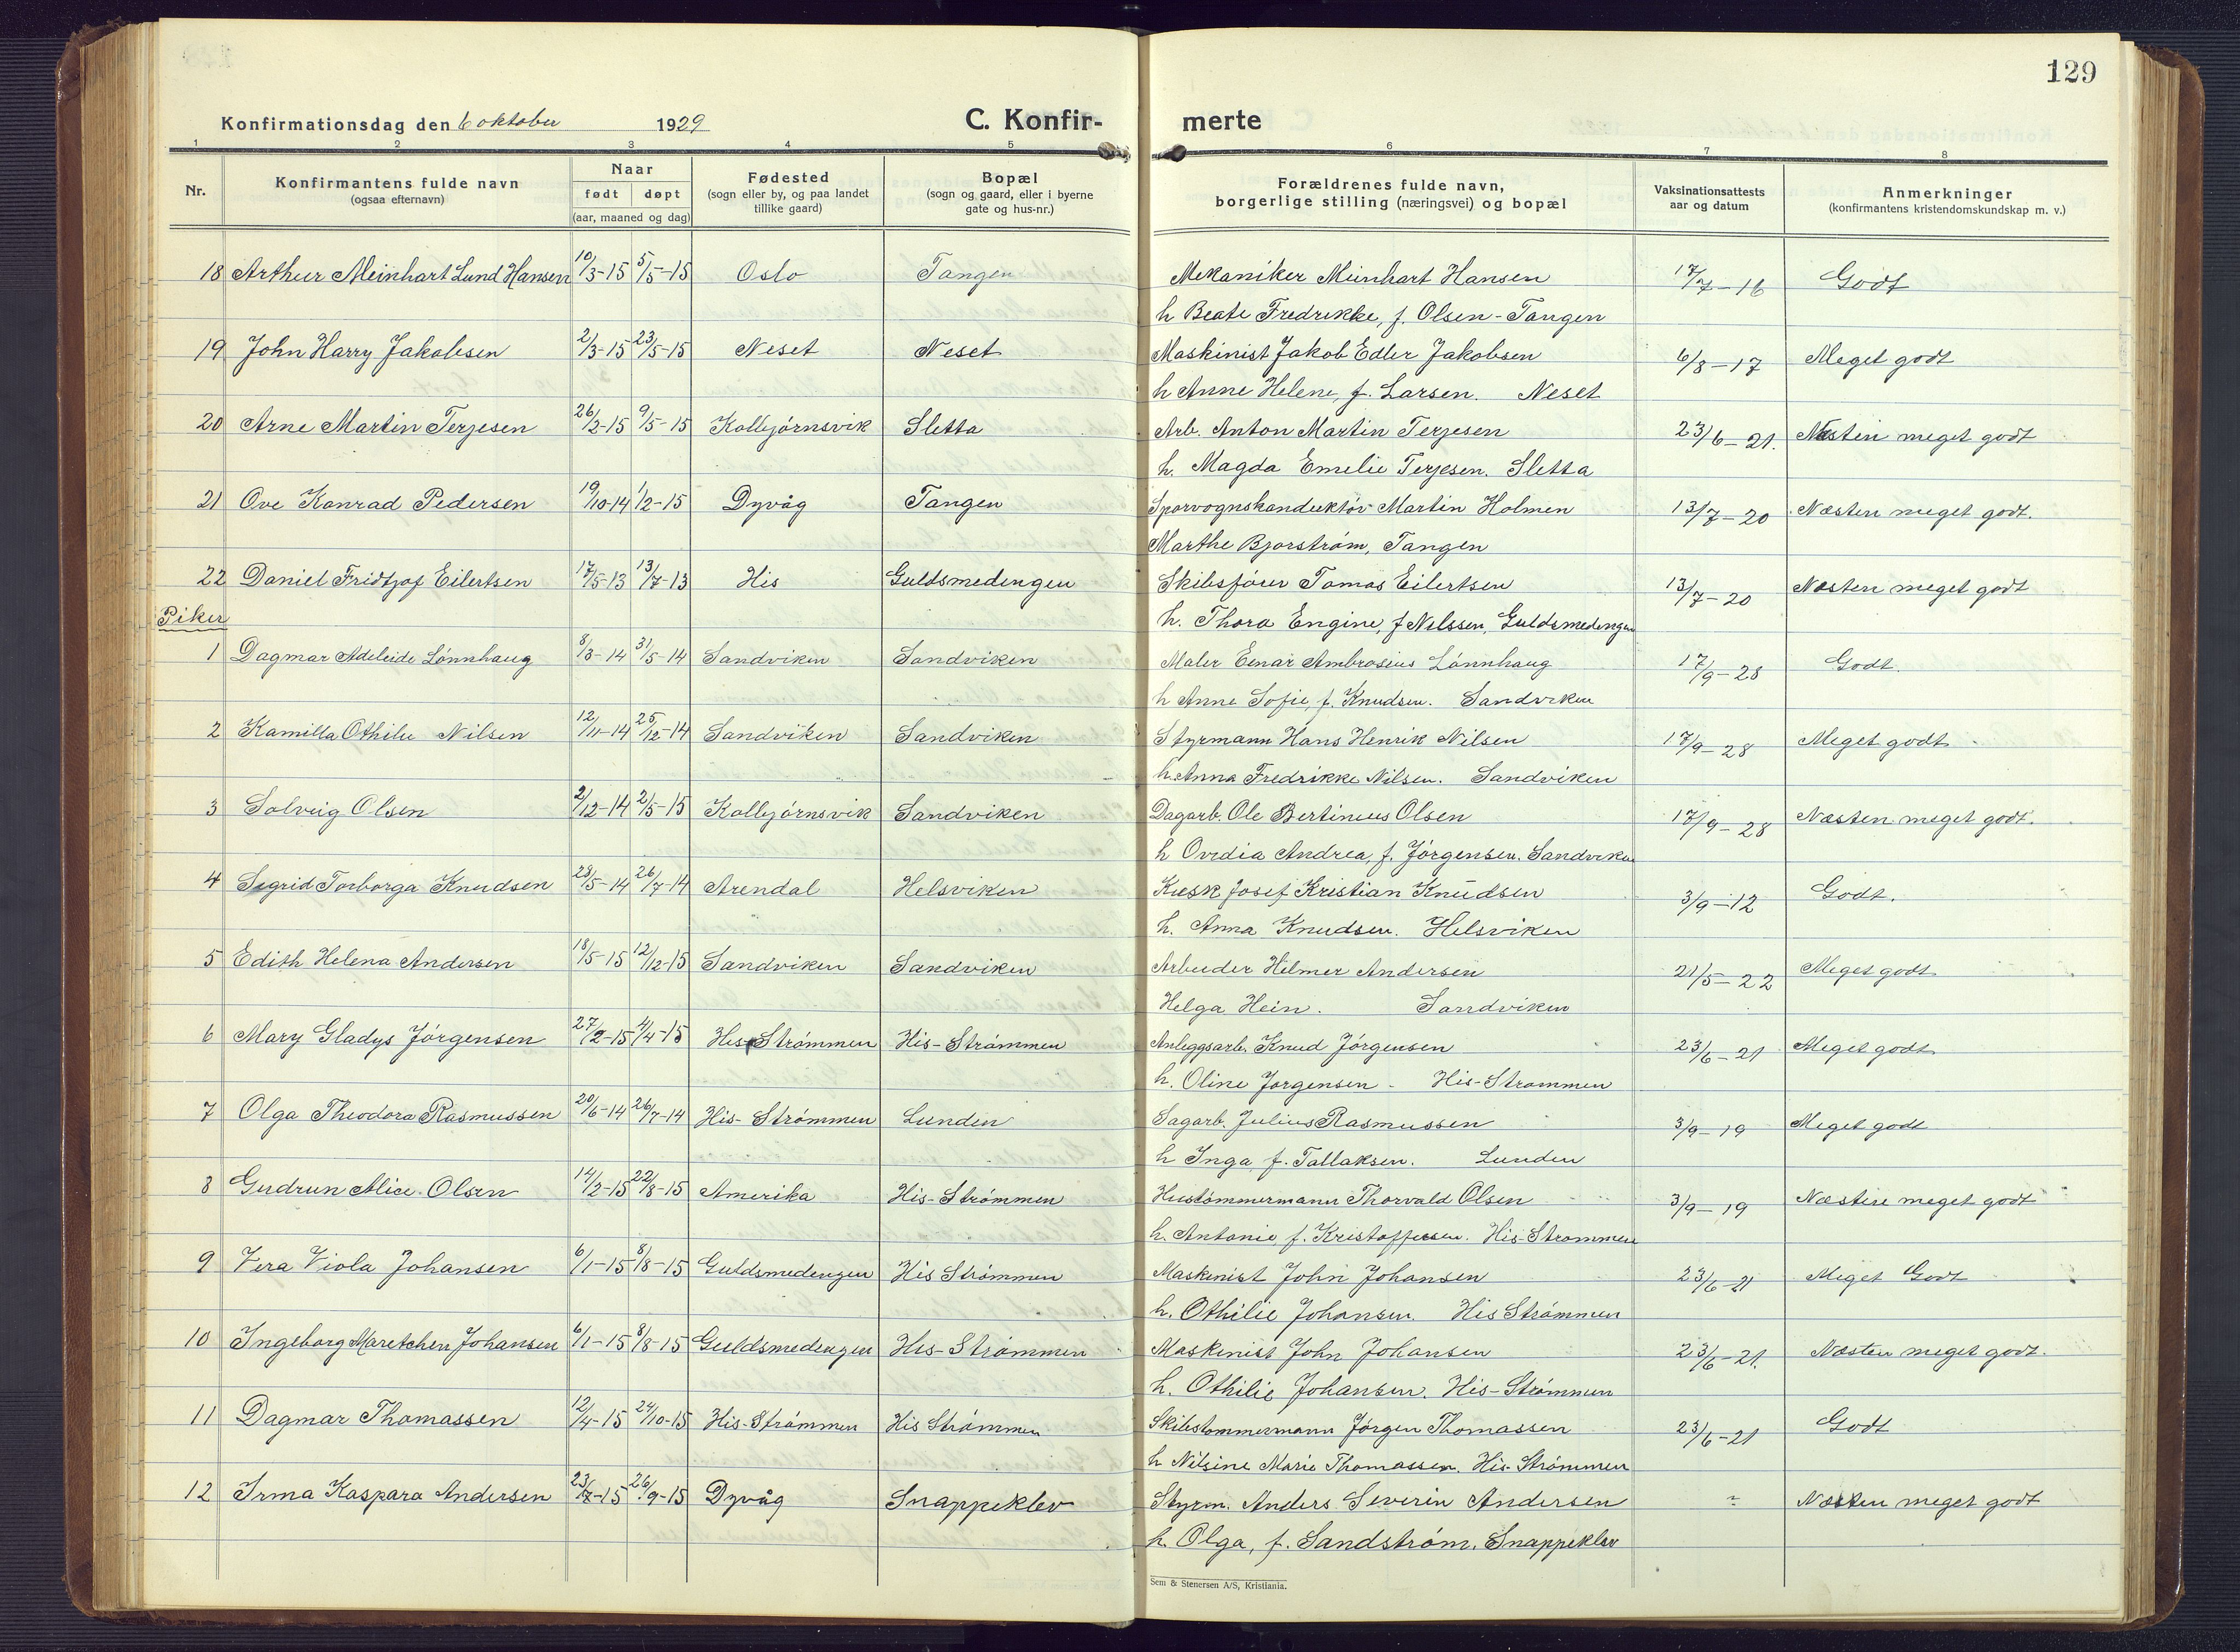 129
Konfirmationsdag den 6 oktober 1929 C. Konfir- merte
1 2 3 4 5 6 7 8
Nr. Konfirmantens fulde navn (ogsaa efternavn) Naar født døpt (aar, maaned og dag) Fødested (sogn eller by, og paa landet tillike gaard) Bopæl (sogn og gaard, eller i byerne gate og hus-nr.) Forældrenes fulde navn, borgerlige stilling (næringsvei) og bopæl Vaksinationsattests aar og datum Anmerkninger (konfirmantens kristendomskundskap m. v.)
18 Arthur Meinhart Lund Hansen 10/3-15 5/5-15 Oslo Tangen Mekaniker Meinhart Hansen 17/7-16 Godt
h Beate Fredrikke, f. Olsen - Tangen
19 John Harry Jakobsen 2/3-15 23/5-15 Neset Neset Maskinist Jakob Edler Jakobsen 6/8-17 Meget godt
h Anne Helene, f. Larsen. Neset
20 Arne Martin Terjesen 26/2-15 9/5-15 Kolbjørnsvik Sletta Arb. Anton Martin Terjesen 23/6-21. Næsten meget godt
h. Magda Emelie Terjesen. Sletta
21 Ove Konrad Pedersen 19/10-14 1/2-15 Dyvåg Tangen Sporvognskonduktør Martin Holmen 13/7-20 Næsten meget godt.
Marthe Bjorstrøm, Tangen
22 Daniel Fridtjof Eilertsen 17/5-13 13/7-13 His Guldsmedengen Skibsfører Tomas Eilertsen 13/7-20 Næsten meget godt
Piker h. Thora Engine, f Nelssen, Guldsmedengen
1 Dagmar Adeleide Lønnhaug 8/3-14 31/5-14 Sandviken Sandviken Maler Einar Ambrosius Lønnhaug 17/9-28 Godt.
h Anne Sofie, f. Knudsen. Sandviken
2 Kamilla Othilie Nilsen 12/11-14 25/12-14 Sandviken Sandviken Styrmann Hans Henrik Nilsen 17/9-28 Meget godt
h. Anna Fredrikke Nilsen. Sandviken
3 Solveig Olsen 2/12-14 2/5-15 Kolbjørnsvik Sandviken Dagarb. Ole Bertinius Olsen 17/9-28 Næsten meget godt.
h Ovedia Andrea, f. Jørgensen. Sandviken
4 Sigrid Torborga Knudsen 23/5-14 26/7-14 Arendal Helsviken Kusk Josef Kristian Knudsen 3/9-12 Godt.
h. Anna Knudsen. Helsviken
5 Edith Helena Andersen 18/5-15 12/12-15 Sandviken Sandviken Arbeider Hilmer Andersen 21/5-22 Meget godt
Helga Hein. Sandviken
6 Mary Gladys Jørgensen 27/2-15 4/4-15 His-Strømmen His-Strømmen Anleggsarb. Knud Jørgensen 23/6-21 Meget godt
h. Oline Jørgensen - His-Strømmen
7 Olga Theodora Rasmussen 20/6-14 26/7-14 His-Strømmen Lunden Sagarb. Julius Rasmussen 3/9-19 Meget godt
h Inga f. Tallaksen. Lunden
8 Gudrun Alice Olsen 14/2-15 22/8-15 Amerika His-Strømmen Hustømmermann Thorvald Olsen 3/9-19 Næsten meget godt
h. Antonie f. Kristoffersen. His-Strømmen
9 Vera Viola Johansen 6/1-15 8/8-15 Guldsmedengen His Strømmen Maskinist John Johansen 23/6-21 Meget Godt
h. Othilie Johansen. His Strømmen
10 Ingeborg Maretchen Johansen 6/1-15 8/8-15 Guldsmedengen His-Strømmen Maskinist John Johansen 23/6-21. Næsten meget godt.
h. Othilie Johansen. His-Strømmen
11 Dagmar Thomassen 12/4-15 24/10-15 His-Strømmen His Strømmen Skibstømmermann Jørgen Thomassen 23/6-21 Godt
h Nilsine Marie Thomassen. His-Strømmen
12 Irma Kaspara Andersen 23/7-15 26/9-15 Dyvåg Snappeklev Styrm. Anders Severin Andersen Næsten meget godt
h. Olga, f. Sandstrøm. Snappeklev
Sem & Stenersen A/S, Kristiania.